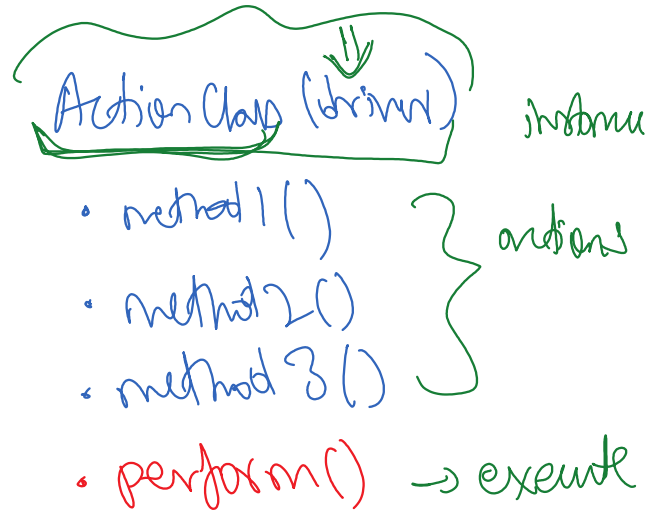 Action Class (driver) instance
• method1() actions
• method2()
• method3()
• perform() → execute